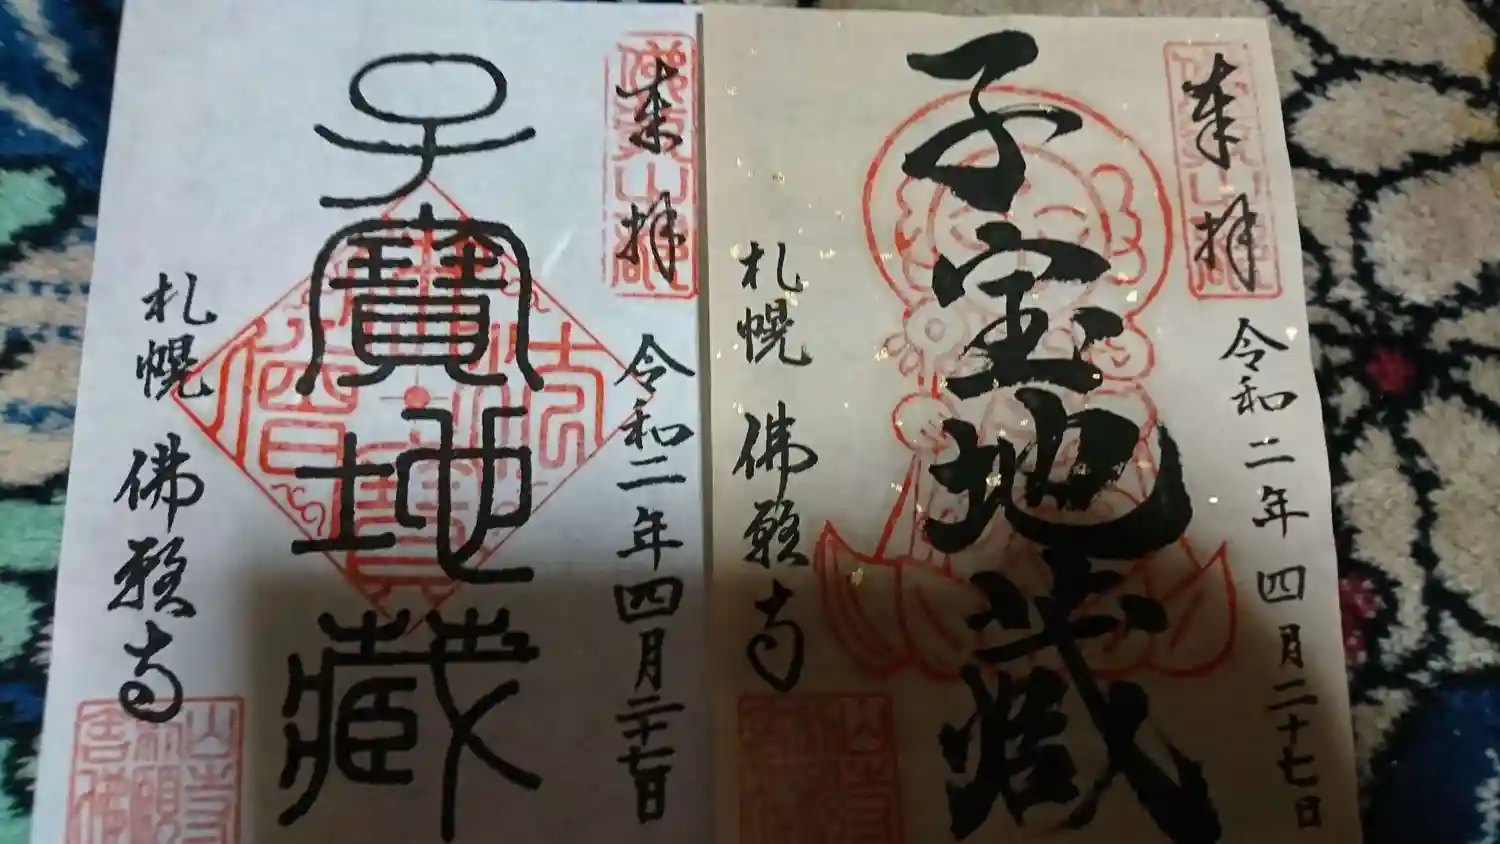 奉拝
令和二年四月二十七日
子宝地蔵
札幌 佛願寺
奉拝
令和二年四月二十七日
子寶地藏
札幌 佛願寺